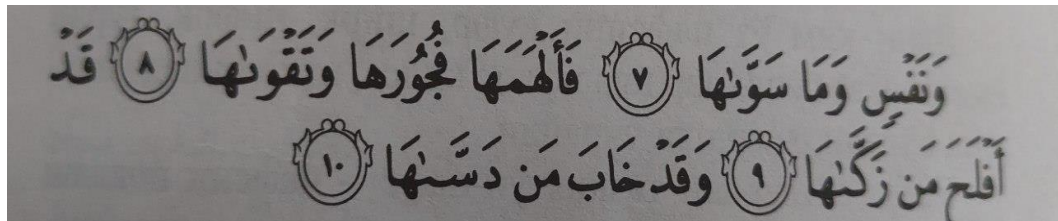 وَنَفْسٍ وَمَا سَوَّىٰهَا ٧ فَأَلْهَمَهَا فُجُورَهَا وَتَقْوَىٰهَا ٨ قَدْ
أَفْلَحَ مَن زَكَّىٰهَا ٩ وَقَدْ خَابَ مَن دَسَّىٰهَا ١٠